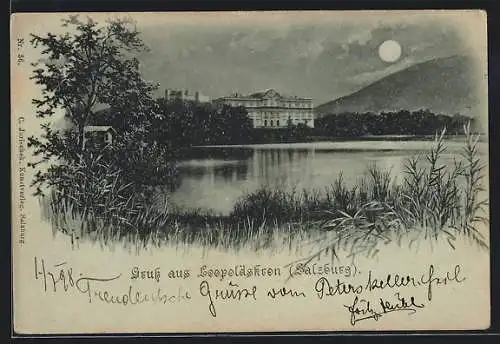 Nr. 56.
C. Jurischek, Kunstverlag, Salzburg.
Gruß aus Leopoldskron (Salzburg).
1/7 98
Grüsse vom Peterskeller
Fritz